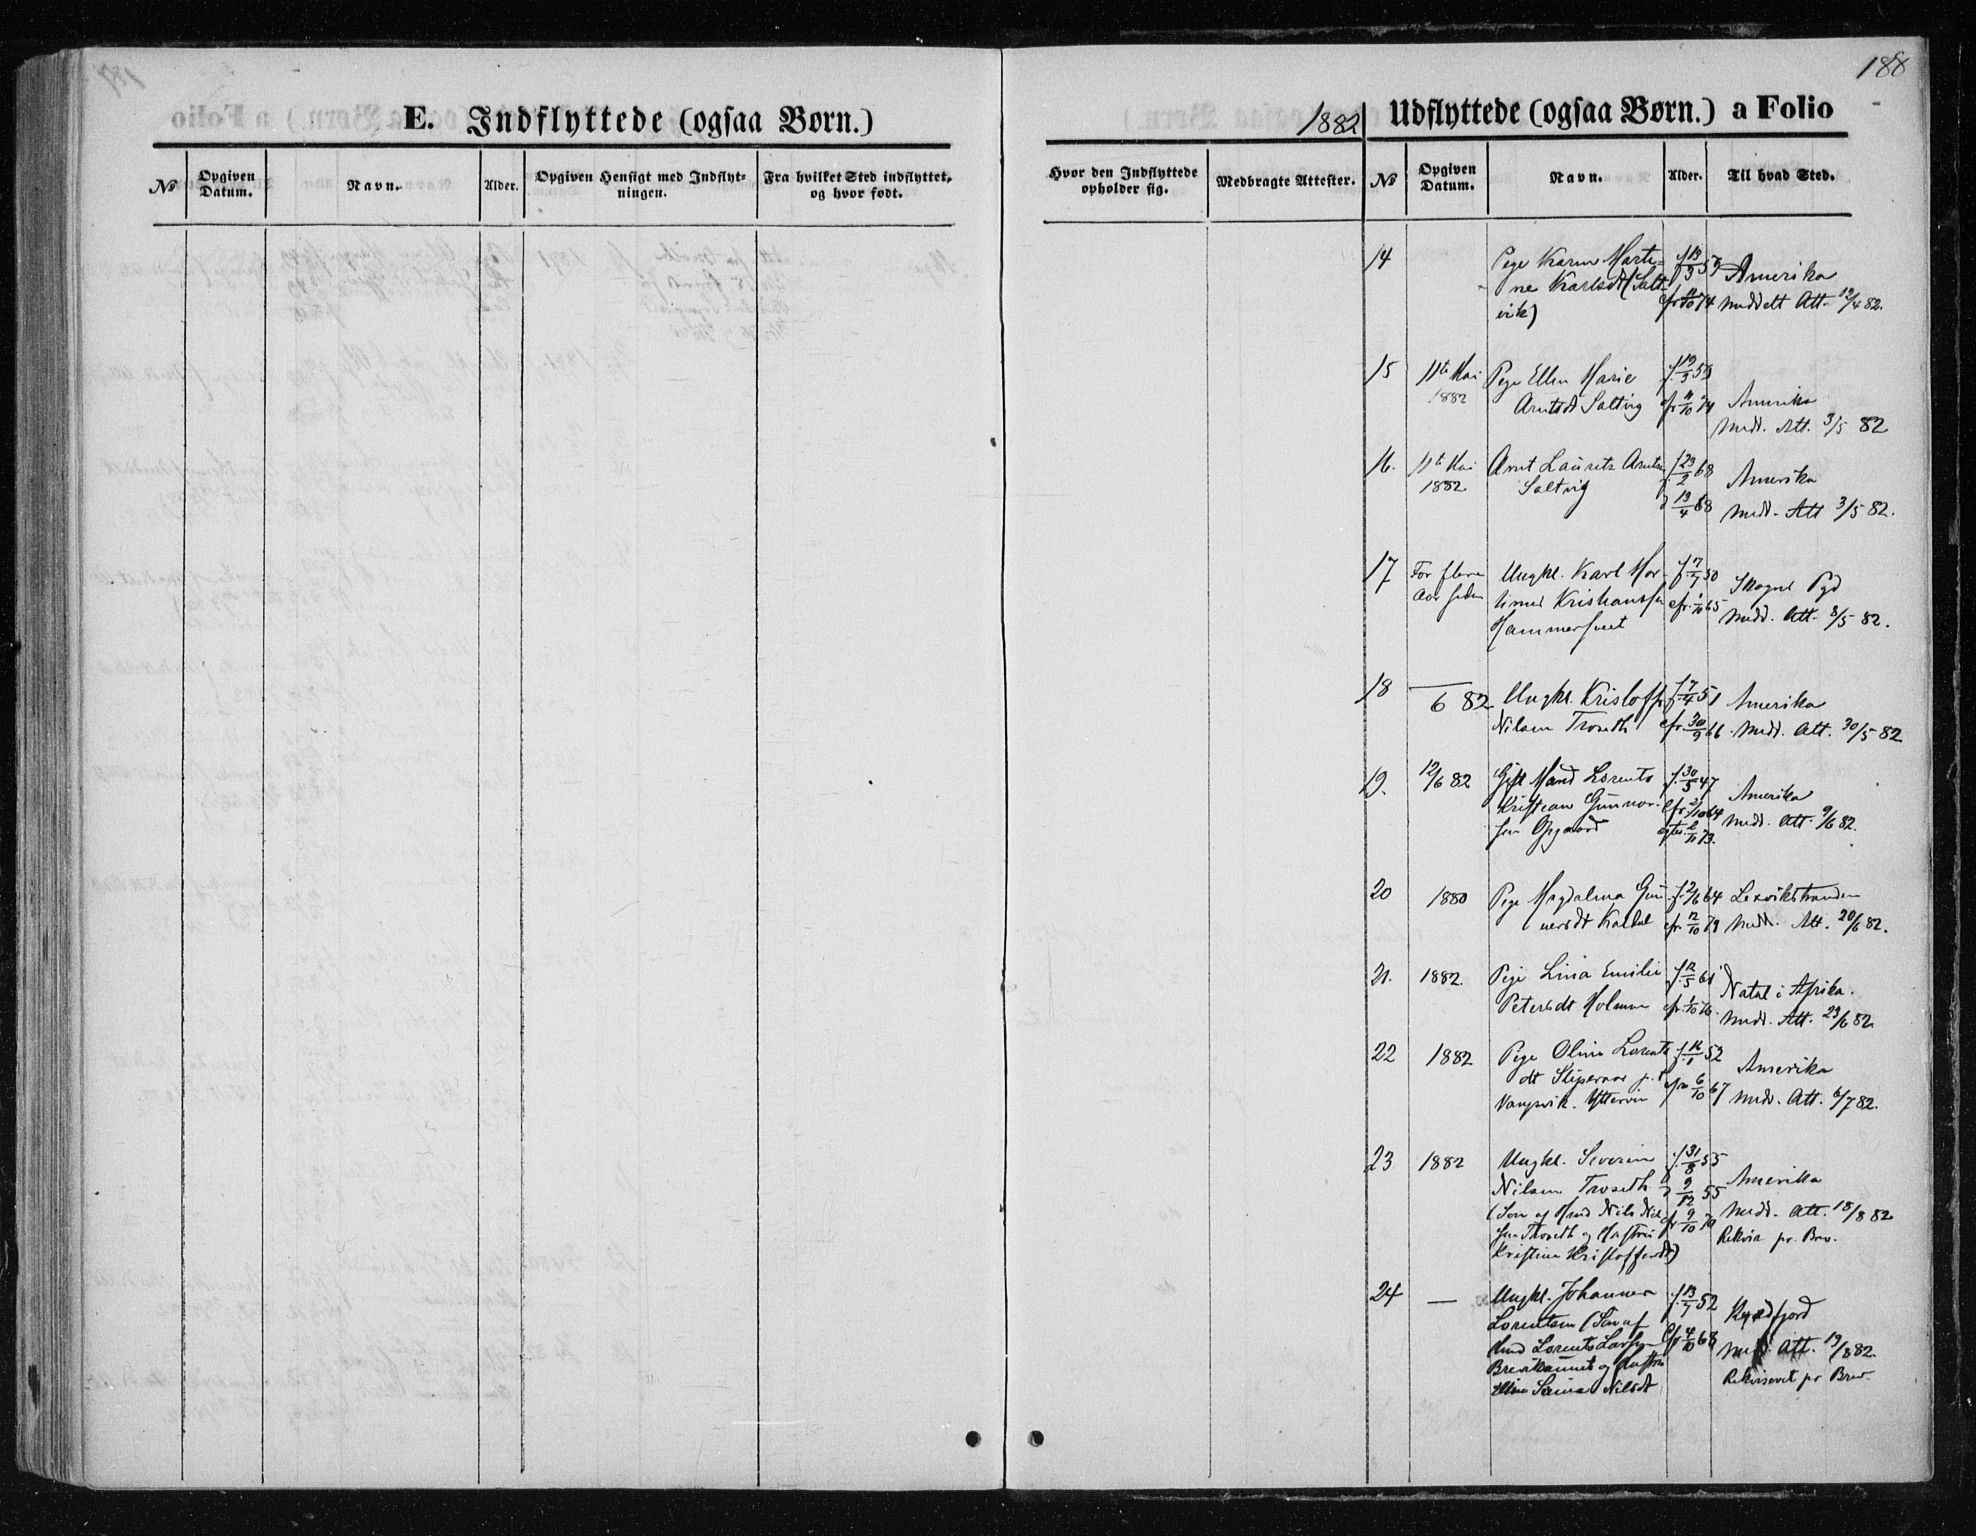 188
E. Indflyttede (ogsaa Børn.)
1882
Udflyttede (ogsaa Børn.) a Folio
No
Opgiven Datum.
Navn.
Alder.
Opgiven Hensigt med Indflyt-
ningen.
Fra hvilket Sted indflyttet,
og hvor født.
Hvor den Indflyttede
opholder sig.
Medbragte Attester.
No
Opgiven
Datum.
Navn.
Alder.
Til hvad Sted.
14
Pige Karen Marti-
ne Karlsdt (Salt-
vik)
f 13/3 59
cfr 11/10 74
Amerika
meddelt Att. 12/4 82.
15
11te Mai
1882
Pige Ellen Marie
Arntsdt Saltvig
f. 19/3 59
cfr 11/10 74
Amerika
medd. Att. 3/5 82
16.
11te Mai
1882
Arnt Laurits Arntsen
Saltvig
f 23/2 68
d 13/4 68
Amerika
medd. Att 3/5 82.
17
For flere
Aar siden
Ungkl. Karl Mor-
Kristiansen
f 17/7 50
cfr. 1/10 65
Skogns Pgd
medd. Att. 8/5 82.
18
6 82
Ungkl. Kristoff
Nilsen Troseth
f 7/4 51
cfr. 30/9 66
Amerika
medd. Att. 30/5 82
19.
12/6 82
Gift Mand Lorents
Kristian Gunnar-
sen Opgaard
f. 30/5 47
cfr 2/10 64
73.
Amerika
medd. Att. 9/6 82.
20
1880
Pige Magdalena Gun-
nersdt Kaldal
f. 2/6 64
cfr. 12/10 79
Lexvikstranden
medd. Att. 20/6 82.
21.
1882.
Pige Lina Emilie
Petersdt Holmen
f 12/5 61
cfr. 1/10 76.
Natal i Afrika.
medd. Att. 23/6 82
22
1882
Pige Oline Lorents
dt
Vangsvik. Ytterøen
52
cfr 6/10 67
Amerika
medd. Att. 6/7 82.
23
1882
Ungkl. Severin
Nilsen Troseth
(Søn af Mand Nils Nil-
sen Troseth og Hustru
Kristine Kristoffersdt)
f. 31/8 55
d 9/12 55
cfr 9/10 70
Amerika
medd. Att. 18/8 82
Rekvir pr. Brev.
24
—
Ungkl. Johannes
Lorentsen (Søn af
Mand Lorents Lars-
og Hustru
Nilsdt
f. 13/7 52
cfr 4/10 68
medd. Att. 19/8 82
Rekvireret pr Brev.